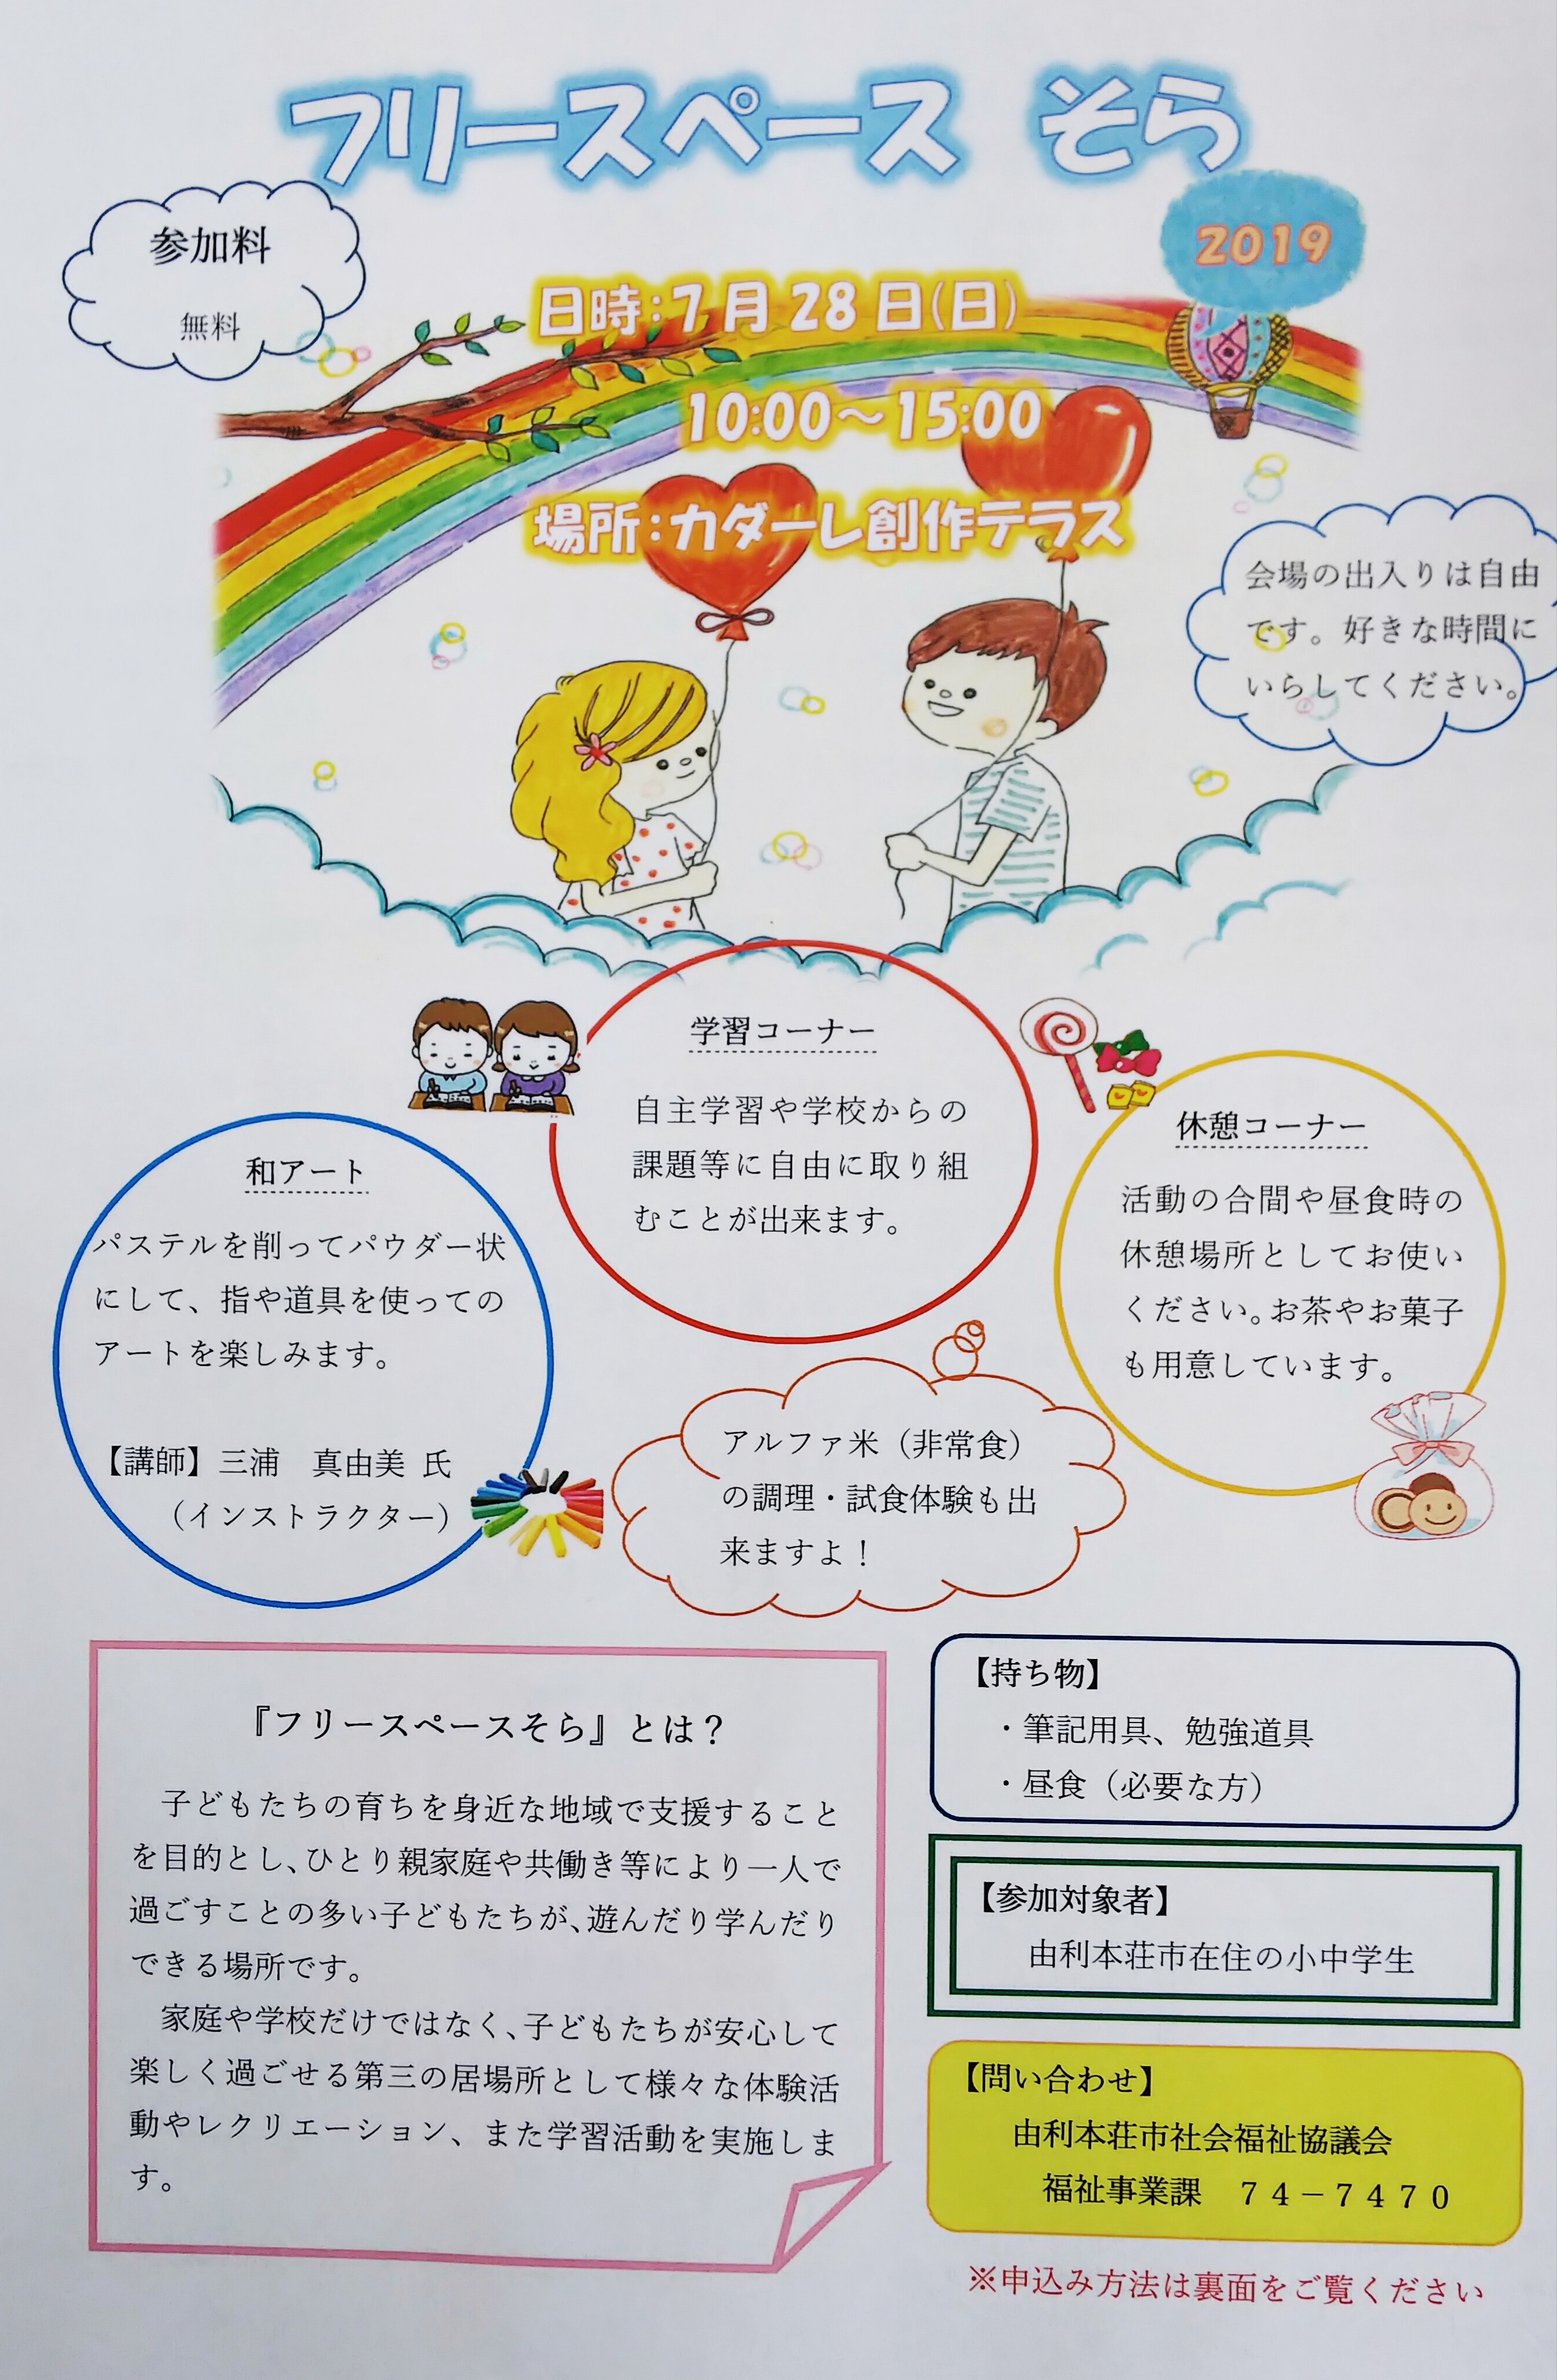 フリースペース そら
2019
参加料
無料
日時:7月28日(日)
10:00～15:00
場所:カダーレ創作テラス
会場の出入りは自由
です。好きな時間に
いらしてください。
学習コーナー
自主学習や学校からの
課題等に自由に取り組
むことが出来ます。
和アート
パステルを削ってパウダー状
にして、指や道具を使っての
アートを楽しみます。
【講師】三浦　真由美 氏
（インストラクター）
休憩コーナー
活動の合間や昼食時の
休憩場所としてお使い
ください。お茶やお菓子
も用意しています。
アルファ米（非常食）
の調理・試食体験も出
来ますよ！
『フリースペースそら』とは？
子どもたちの育ちを身近な地域で支援すること
を目的とし、ひとり親家庭や共働き等により一人で
過ごすことの多い子どもたちが、遊んだり学んだり
できる場所です。
家庭や学校だけではなく、子どもたちが安心して
楽しく過ごせる第三の居場所として様々な体験活
動やレクリエーション、また学習活動を実施しま
す。
【持ち物】
・筆記用具、勉強道具
・昼食（必要な方）
【参加対象者】
由利本荘市在住の小中学生
【問い合わせ】
由利本荘市社会福祉協議会
福祉事業課　７４－７４７０
※申込み方法は裏面をご覧ください